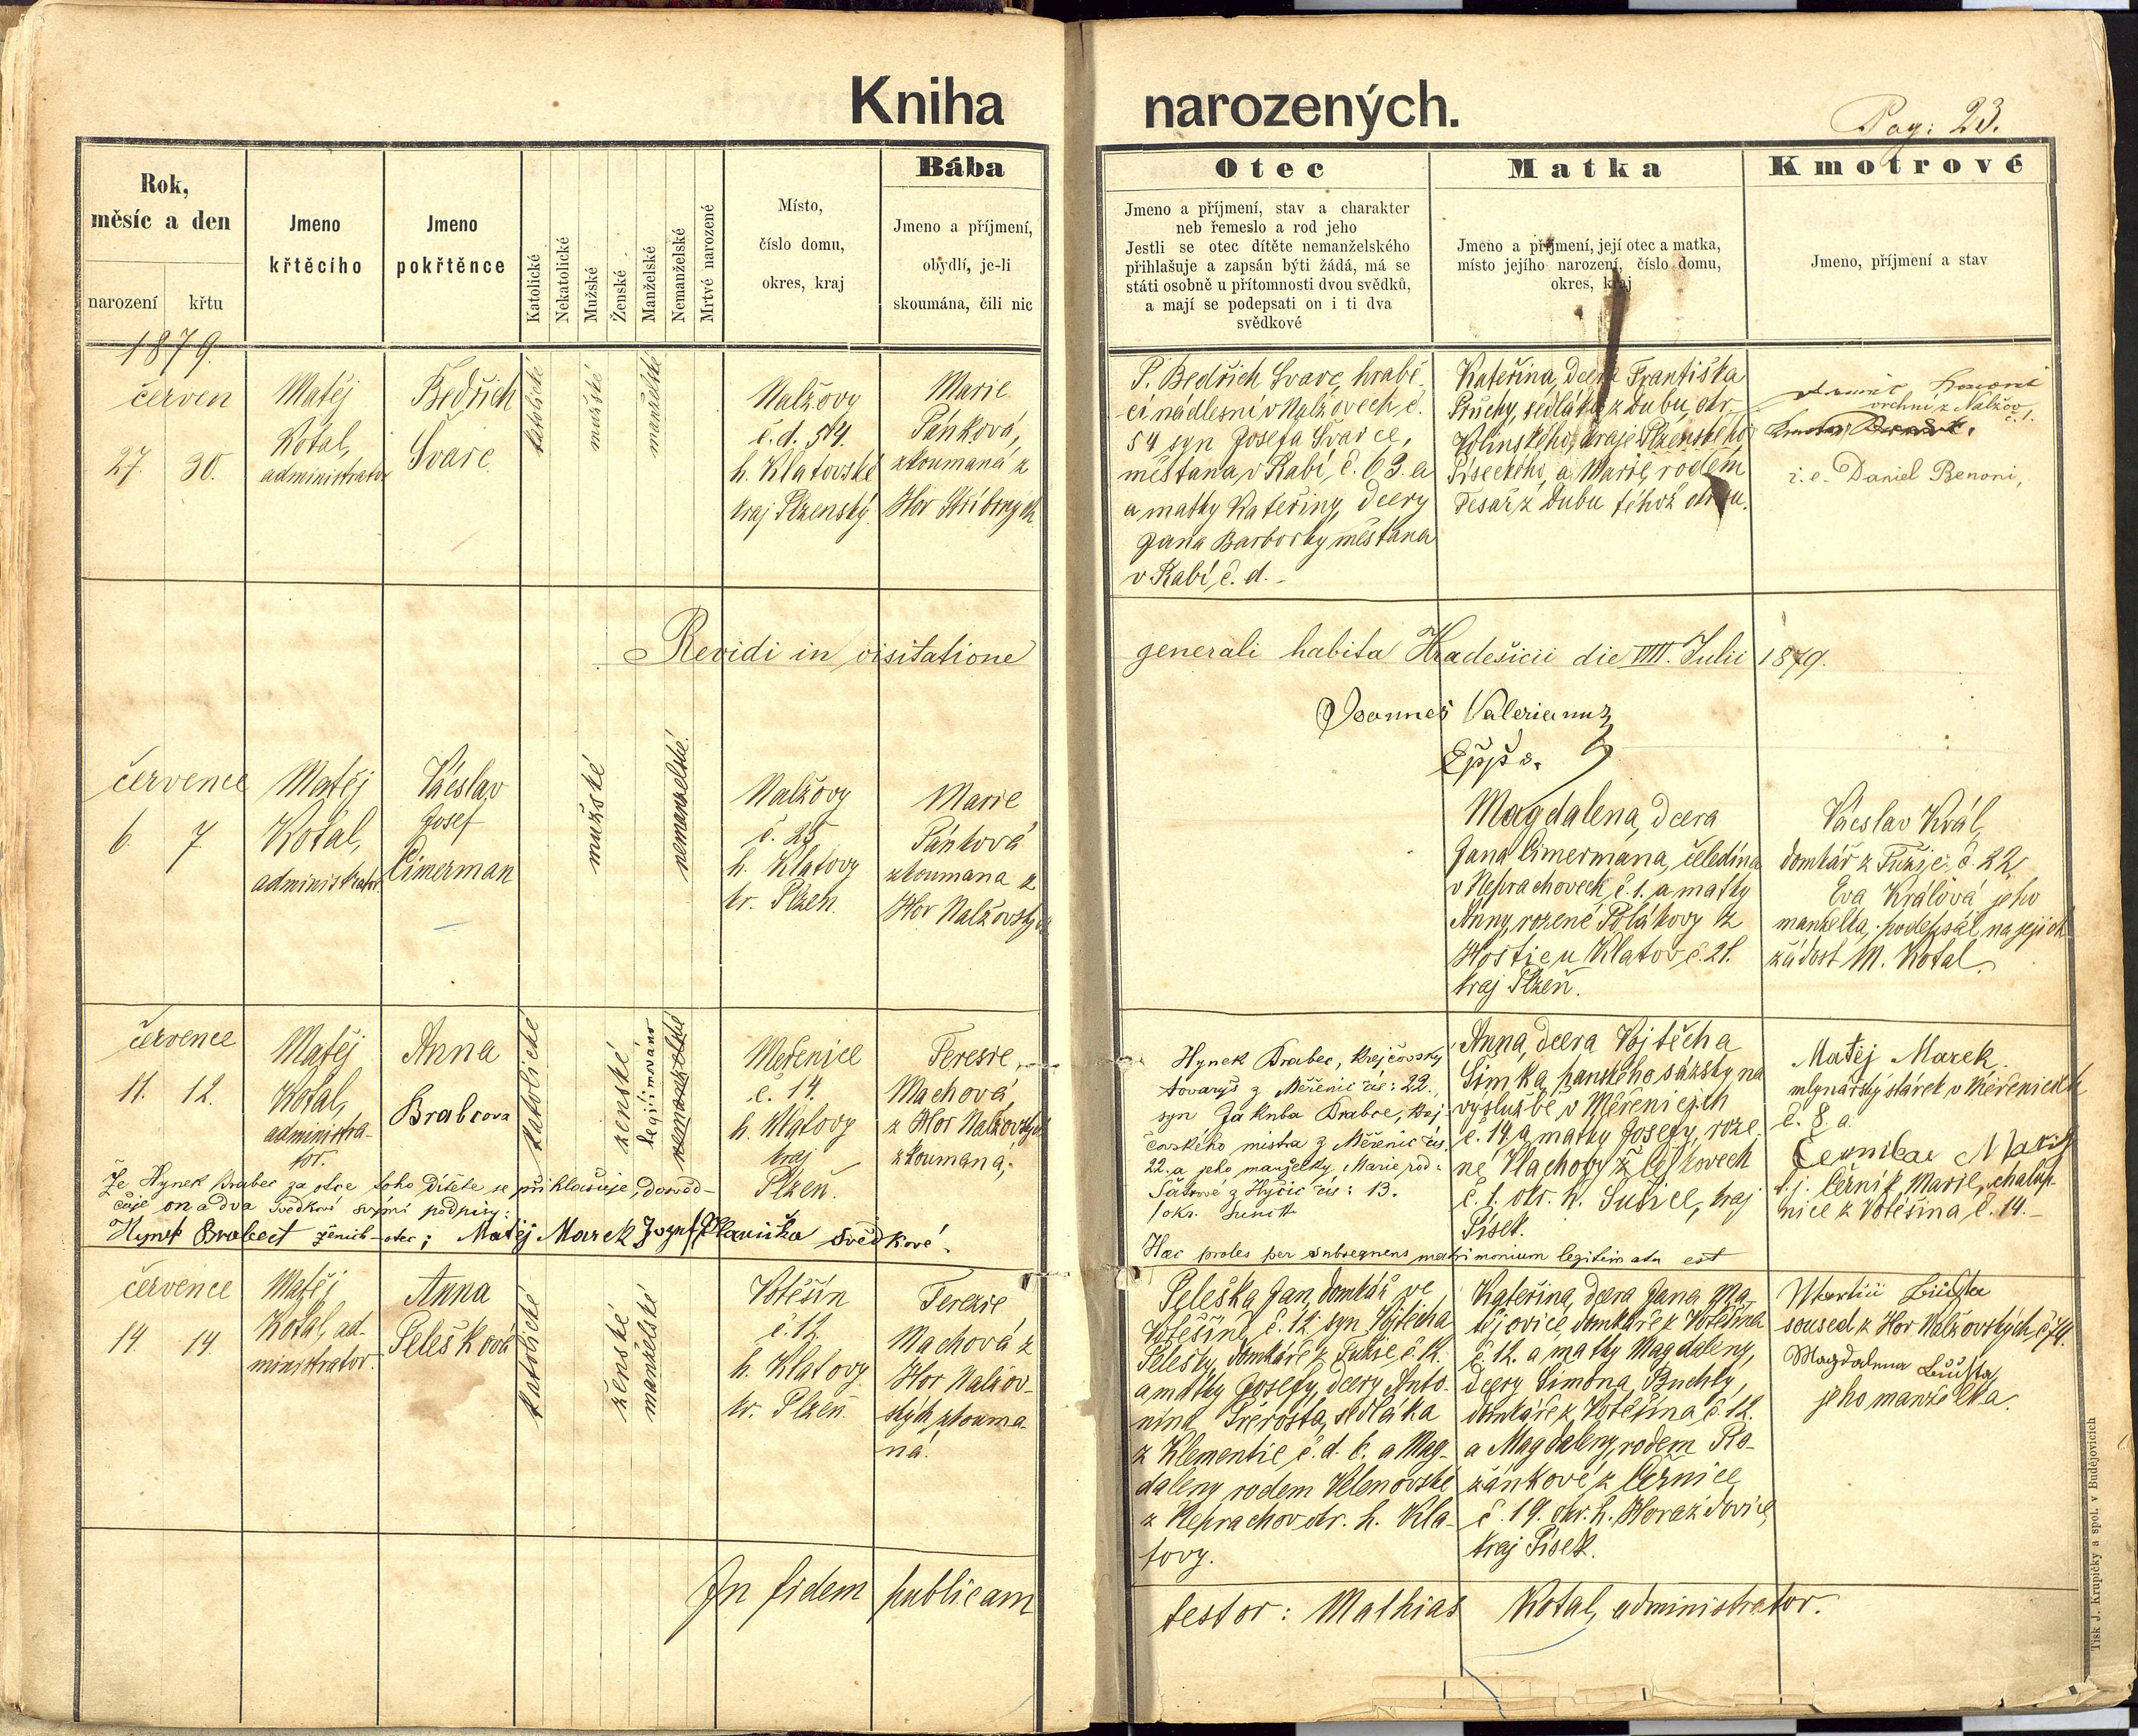 Kniha narozených.
Pag: 23.
Rok,
měsíc a den
narození
křtu
Jmeno
křtěcího
Jmeno
pokřtěnce
Katolické
Nekatolické
Mužské
Ženské
Manželské
Nemanželské
Mrtvé narozené
Místo,
číslo domu,
okres, kraj
Bába
Jmeno a příjmení,
obydlí, je-li
skoumána, čili nic
Otec
Jmeno a příjmení, stav a charakter
neb řemeslo a rod jeho
Jestli se otec dítěte nemanželského
přihlašuje a zapsán býti žádá, má se
státi osobně u přítomnosti dvou svědků,
a mají se podepsati on i ti dva
svědkové
Matka
Jmeno a příjmení, její otec a matka,
místo jejího narození, číslo domu,
okres, kraj
Kmotrové
Jmeno, příjmení a stav
1879.
červen
27. 30.
Matěj
Kotal,
administrator
Bedřich
Švarc
katolické
mužské
manželské
Nalžovy
č. d. 54.
h. Klatovské
kraj Plzenský.
Marie
Pánková,
zkoumaná z
Hor Stříbrných
P. Bedřich Švarc, hrabě
cí nádlesní v Nalžovech, č.
54 syn Josefa Švarce,
měšťana v Rabí, č. 63. a
a matky Kateřiny, dcery
Jana Barborky měšťana
v Rabí, č. d. -
Kateřina, dcera Františka
sedláka z Dubu, okr.
Volinského, kraje Plzenského
Píseckého, a Marie, rodem
Tesař z Dubu téhož okresu.
vrchní z Nalžov
č. 1.
i. e. Daniel Benoni,
Revidi in visitatione generali habita Hradešicii die VIII. Julii 1879.
Joannes Valerianus
Eppus.
července
6 7
Matěj
Kotal,
administrator.
Václav
Josef
Cimerman
mužské
nemanželské.
Nalžovy
č. 25
h. Klatovy
kr. Plzeň.
Marie
Pánková
zkoumana z
Hor Nalžovských
Magdalena, dcera
Jana Cimermana, čeledína
v Neprachovech, č. 1. a matky
Anny, rozené Polákovy z
Hoštic u Klatov č. 21.
kraj Plzeň.
Václav Král,
domkář z Tužic č. 22
Eva Králová jeho
manželka, podepsál na jejich
žádost M. Kotal.
července
11. 12.
Matěj
Kotal,
administra-
tor.
Anna
Brabcova
katolické
ženské
legitimováno
nemanželské
Měřenice
č. 14.
h. Klatovy
kraj
Plzeň.
Terezie
Machová,
z Hor Nalžovských
zkoumaná,
Hynek Brabec, krejčovský
tovaryš z Měřenic čís: 22.,
syn Jakuba Brabce, krej
čovského mistra z Měřenic čís.
22. a jeho manželky Marie, rod:
z Hyčic čís: 13.
okr. Sušice
Anna, dcera Vojtěcha
Šimka, panského sázky, na
výslužbě v Měřenicích
č. 14. a matky Josefy, roze
né Vlachovy z
č. 1. okr. h. Sušice, kraj
Písek.
Matěj Marek
mlynářský stárek v Měřenicích
č. 8. a
t. j. Černík Marie, chalup-
nice z Votěšína č. 14. -
Že Hynek Brabec za otce toho dítěte se přihlašuje, dosvěd-
čuje on a dva svědkové svými podpisy:
Hynek Brabect ženich-otec; Matěj Marek Josef Plavička svědkové.
Haec proles per subsequens matrimonium legitimata est
července
14 14.
Matěj
Kotal, ad-
ministrator.
Anna
Pelešková
katolické
ženské
manželské
Votěšín
č. 12.
h. Klatovy
kr. Plzeň.
Terezie
Machová z
Hor Nalžov-
ských zkouma-
ná.
Peleška Jan, domkář ve
Votěšíně, č. 12, syn Vojtěcha
Pelešky, domkáře z Tužic, č. 12.
a matky Josefy, dcery Anto-
nína Přerosta, sedláka
z Klementic č. d. 6. a Mag-
daleny rodem Velenovské
z Neprachov okr. h. Kla-
tovy.
Kateřina, dcera Jana Ma-
tějovice, domkáře z Votěšína
č. 12. a matky Magdaleny,
dcery Šimona Buchty,
domkáře z Votěšína č. 12.
a Magdaleny, rodem Ro-
žánkové z Černice
č. 19. okr. h. Horažďovice,
kraj Písek.
Martin
soused z Hor Nalžovských, č. 74.
Magdalena
jeho manželka.
In fidem publicam testor: Mathias Kotal, administrator.
Tisk J. Krupičky a spol. v Budějovicích